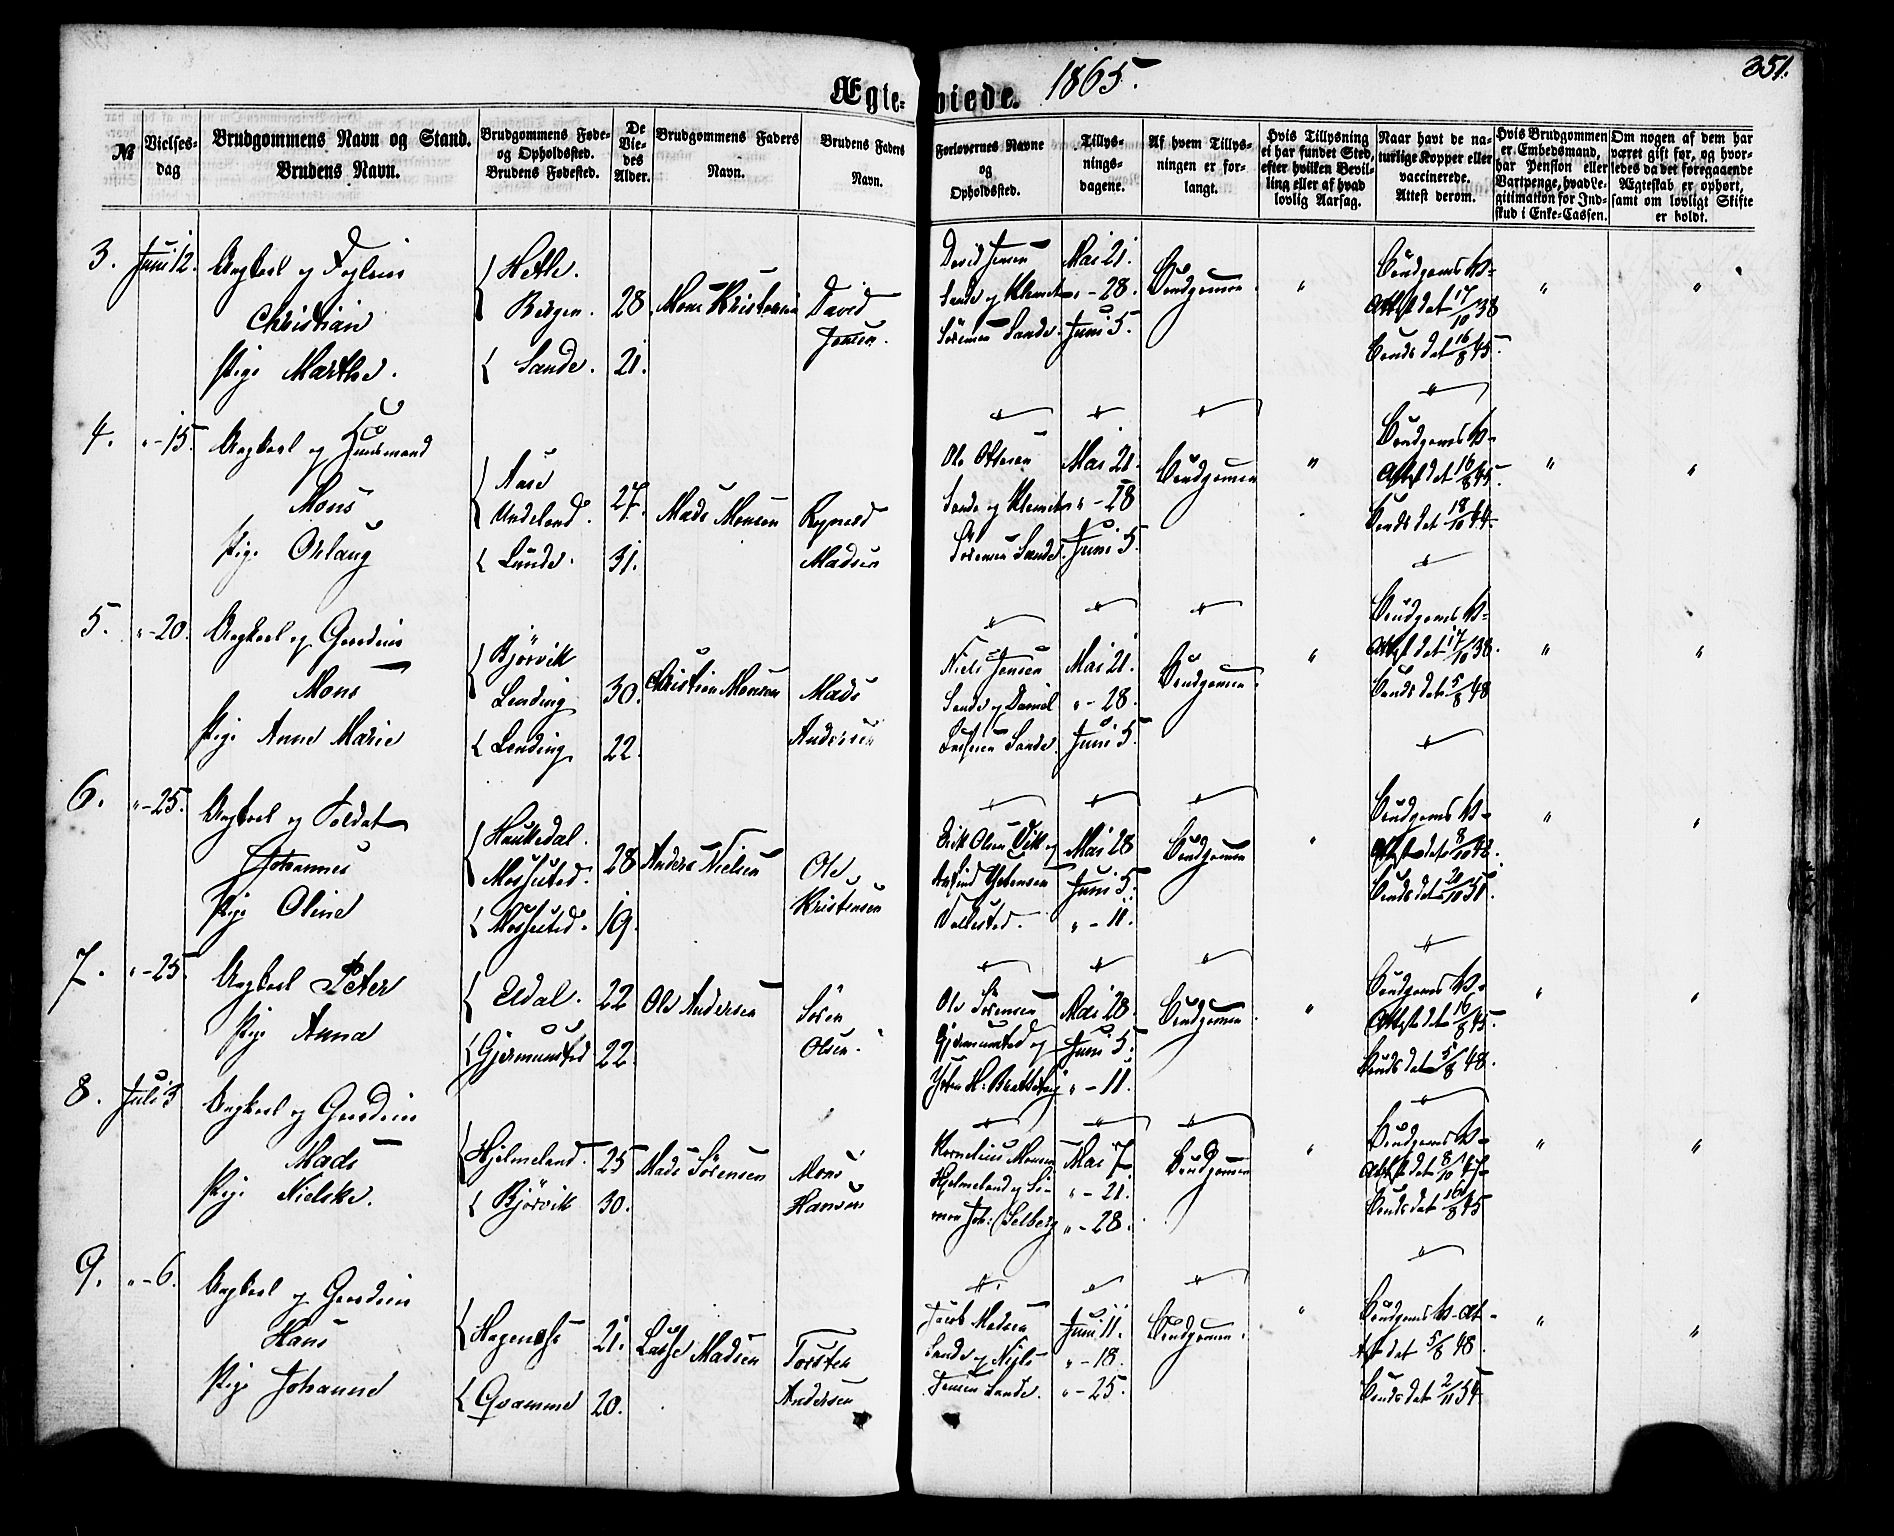 351.
Ægte- viede. 1865.
№
Vielses-dag
Brudgommens Navn og Stand. Brudens Navn.
Brudgommens Føde- og Opholdssted. Brudens Fødested.
De Vie-des Alder.
Brudgommens Faders Navn.
Brudens Faders Navn.
Forlovernes Navne og Opholdssted.
Tillys-nings-dagene.
Af hvem Tillys-ningen er for-langt.
Hvis Tillysning ei har fundet Sted, efter hvilken Bevil-ling eller af hvad lovlig Aarsag.
Naar havt de na-turlige Kopper eller vaccinerede. Attest derom.
Hvis Brudgommen er Embedsmand, har Pension eller Vartpenge, hvad Le-gitimation for Ind-skud i Enke-Cassen.
Om nogen af dem har været gift før, og hvor-ledes da det foregaaende Ægteskab er ophørt, samt om lovligt Skifte er holdt.
3. Juni 12. Ungkarl og
Christian
Pige Marthe.
Hetle.
Bergen. 28
Sande. 21.
Mons Kristensen
David
Jensen.
David Jensen Mai 21.
Sande og Klemet " - 28.
Sörensen Sande. Juni 5.
Brudgommen. "
Brudgoms V-
Attest dat 17/10 38
Bruds dat 16/8 45.
" "
4. " - 15. Ungkarl og Huusmand
Mons
Pige Orlaug
Aase
Undeland. 27.
Lunde. 31.
Mads Monsen
Madsen
Ole Ottesen Mai 21.
Sande og Klemet " - 28
Sörensen Sande. Juni 5.
Brudgommen "
Brudgoms V-
Attest dat 16/8 45.
Bruds dat 18/10 44
" "
5. " - 20. Ungkarl og Gaardm
Mons
Pige Anne Marie
Bjørvik
Lending 30.
Lending 22.
Christian Monsen
Mads
Andersen
Niels Jensen Mai 21.
Sande og Daniel " - 28.
Sande. Juni 5.
Brudgommen. "
Brudgoms V-
Attest dat 17/10 38.
Bruds dat 5/8 48
" "
6. " - 25. Ungkarl og Soldat
Johannes
Pige Oline
Haukedal.
Mossested. 28
Mossested. 19.
Anders Nielsen
Ole
Kristensen
Erik Olsen Vik og Mai 28
Juni 5.
" - 11.
Brudgommen "
Brudgoms V-
Attest dat 8/10 42.
Bruds dat 2/10 51.
" "
7. " - 25. Ungkarl Peter
Pige Anna
Eldal. 22
Gjermunsted 22.
Ole Andersen
Sören
Olsen.
Ole Sörensen Mai 28
Gjermunsted og Juni 5.
" - 11.
Brudgommen. "
Brudgoms V-
Attest dat 16/8 45.
Bruds dat 5/8 48.
" "
8. Juli 3 Ungkarl og Gaardm
Mads
Pige Nielske.
Hjelmeland. 25
Bjørvik 30.
Mads Sørensen
Mons
Hansen
Kornelius Monsen Mai 7
Hjelmeland og Si- " - 21.
mon Joh: Solberg " - 28.
Brudgommen "
Brudgoms V-
Attest dat 8/10 47
Bruds dat 16/8 45
" "
9. " - 6. Ungkarl og Gaardm
Hans
Pige Johanne
21.
Qvamme 20.
Lasse Madsen
Torsten
Andersen
Jacob Madsen Juni 11.
Sande og Niels " - 18.
Jensen Sande. " - 25.
Brudgommen. "
Brudgoms V-At-
test dat 5/8 48.
Bruds dat 2/11 54
" "